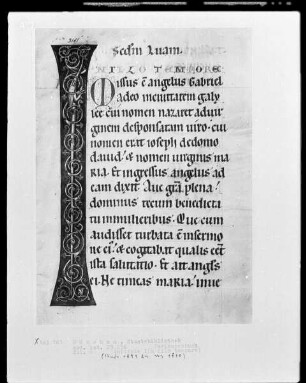 Secdm Lucam.
IN ILLO TEMPORE
Missus ē angelus Gabriel
a deo in ciuitatem galy
lee cui nomen nazaret ad uir
ginem desponsatam uiro. cui
nomen erat ioseph de domo
dauid. & nomen uirginis ma
ria. Et ingressus angelus ad
eam dixit. Aue gra plena.
dominus tecum benedicta
tu in mulieribus. Que cum
audisset turbata ē in sermo
ne ei. & cogitabat qualis eēt
ista salutatio. Et ait angls
ei. Ne timeas maria. inue